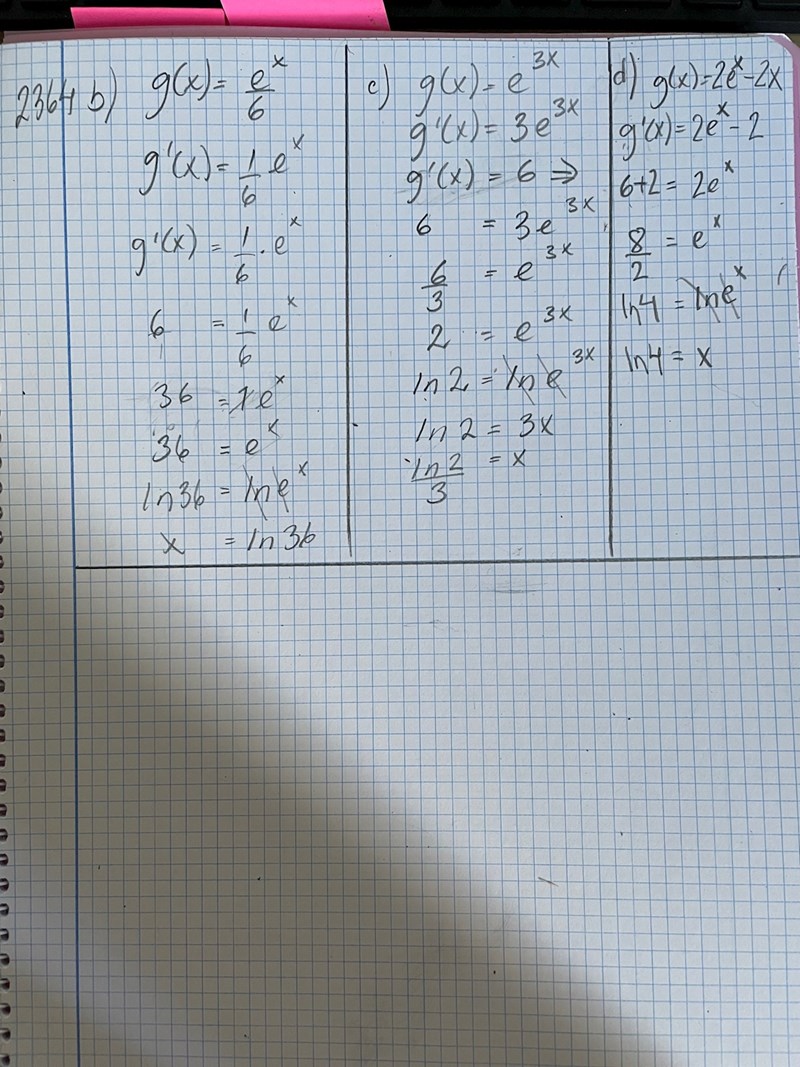 2364 b) g(x) = e^x/6
g'(x) = 1/6 e^x
g'(x) = 1/6 · e^x
6 = 1/6 e^x
36 = 1e^x
36 = e^x
ln36 = ln e^x
x = ln36
c) g(x) = e^3x
g'(x) = 3e^3x
g'(x) = 6 ⇒
6 = 3e^3x
6/3 = e^3x
2 = e^3x
ln2 = ln e^3x
ln2 = 3x
ln2/3 = x
d) g(x) = 2e^x - 2x
g'(x) = 2e^x - 2
6+2 = 2e^x
8/2 = e^x
ln4 = ln e^x
ln4 = x